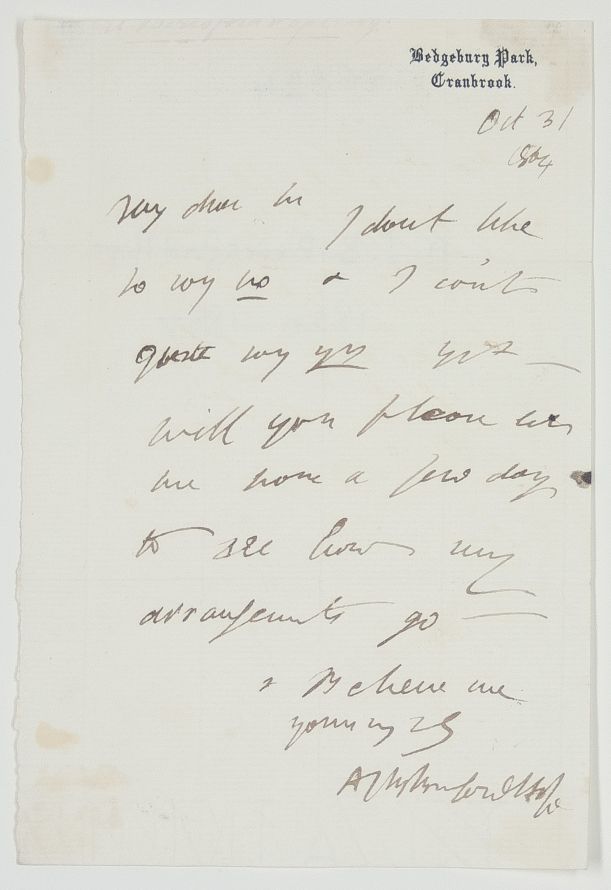 Bedgebury Park,
Cranbrook.
Oct 31
1864
My dear Sir I dont like
to say no & I can't
quite say yes yet —
will you please let
me have a few days
to see how my
arrangements go —
& Believe me
yours
A J B Beresford Hope